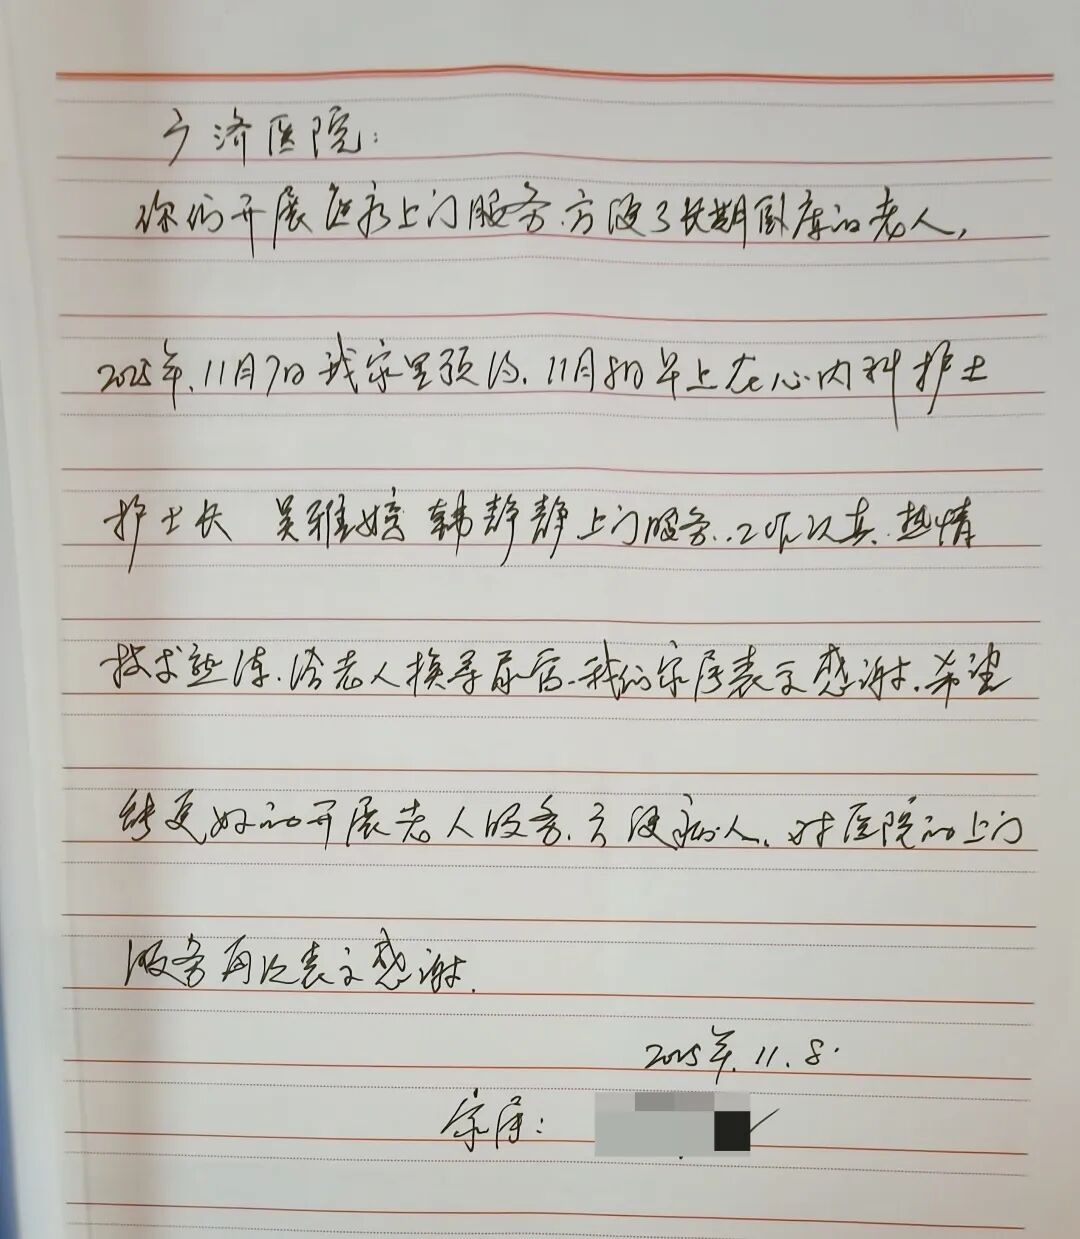 广济医院:
你们开展医疗上门服务.方便了长期卧床的老人,
2025年.11月7日我家里预约.11月8日早上在心内科护士
护士长 吴雅婷 韩静静上门服务..工作认真.热情
技术熟练.给老人换导尿管.我们家属表示感谢.希望
能更好的开展老人服务.方便病人.对医院的上门
服务再次表示感谢.
2025年.11.8.
家属: